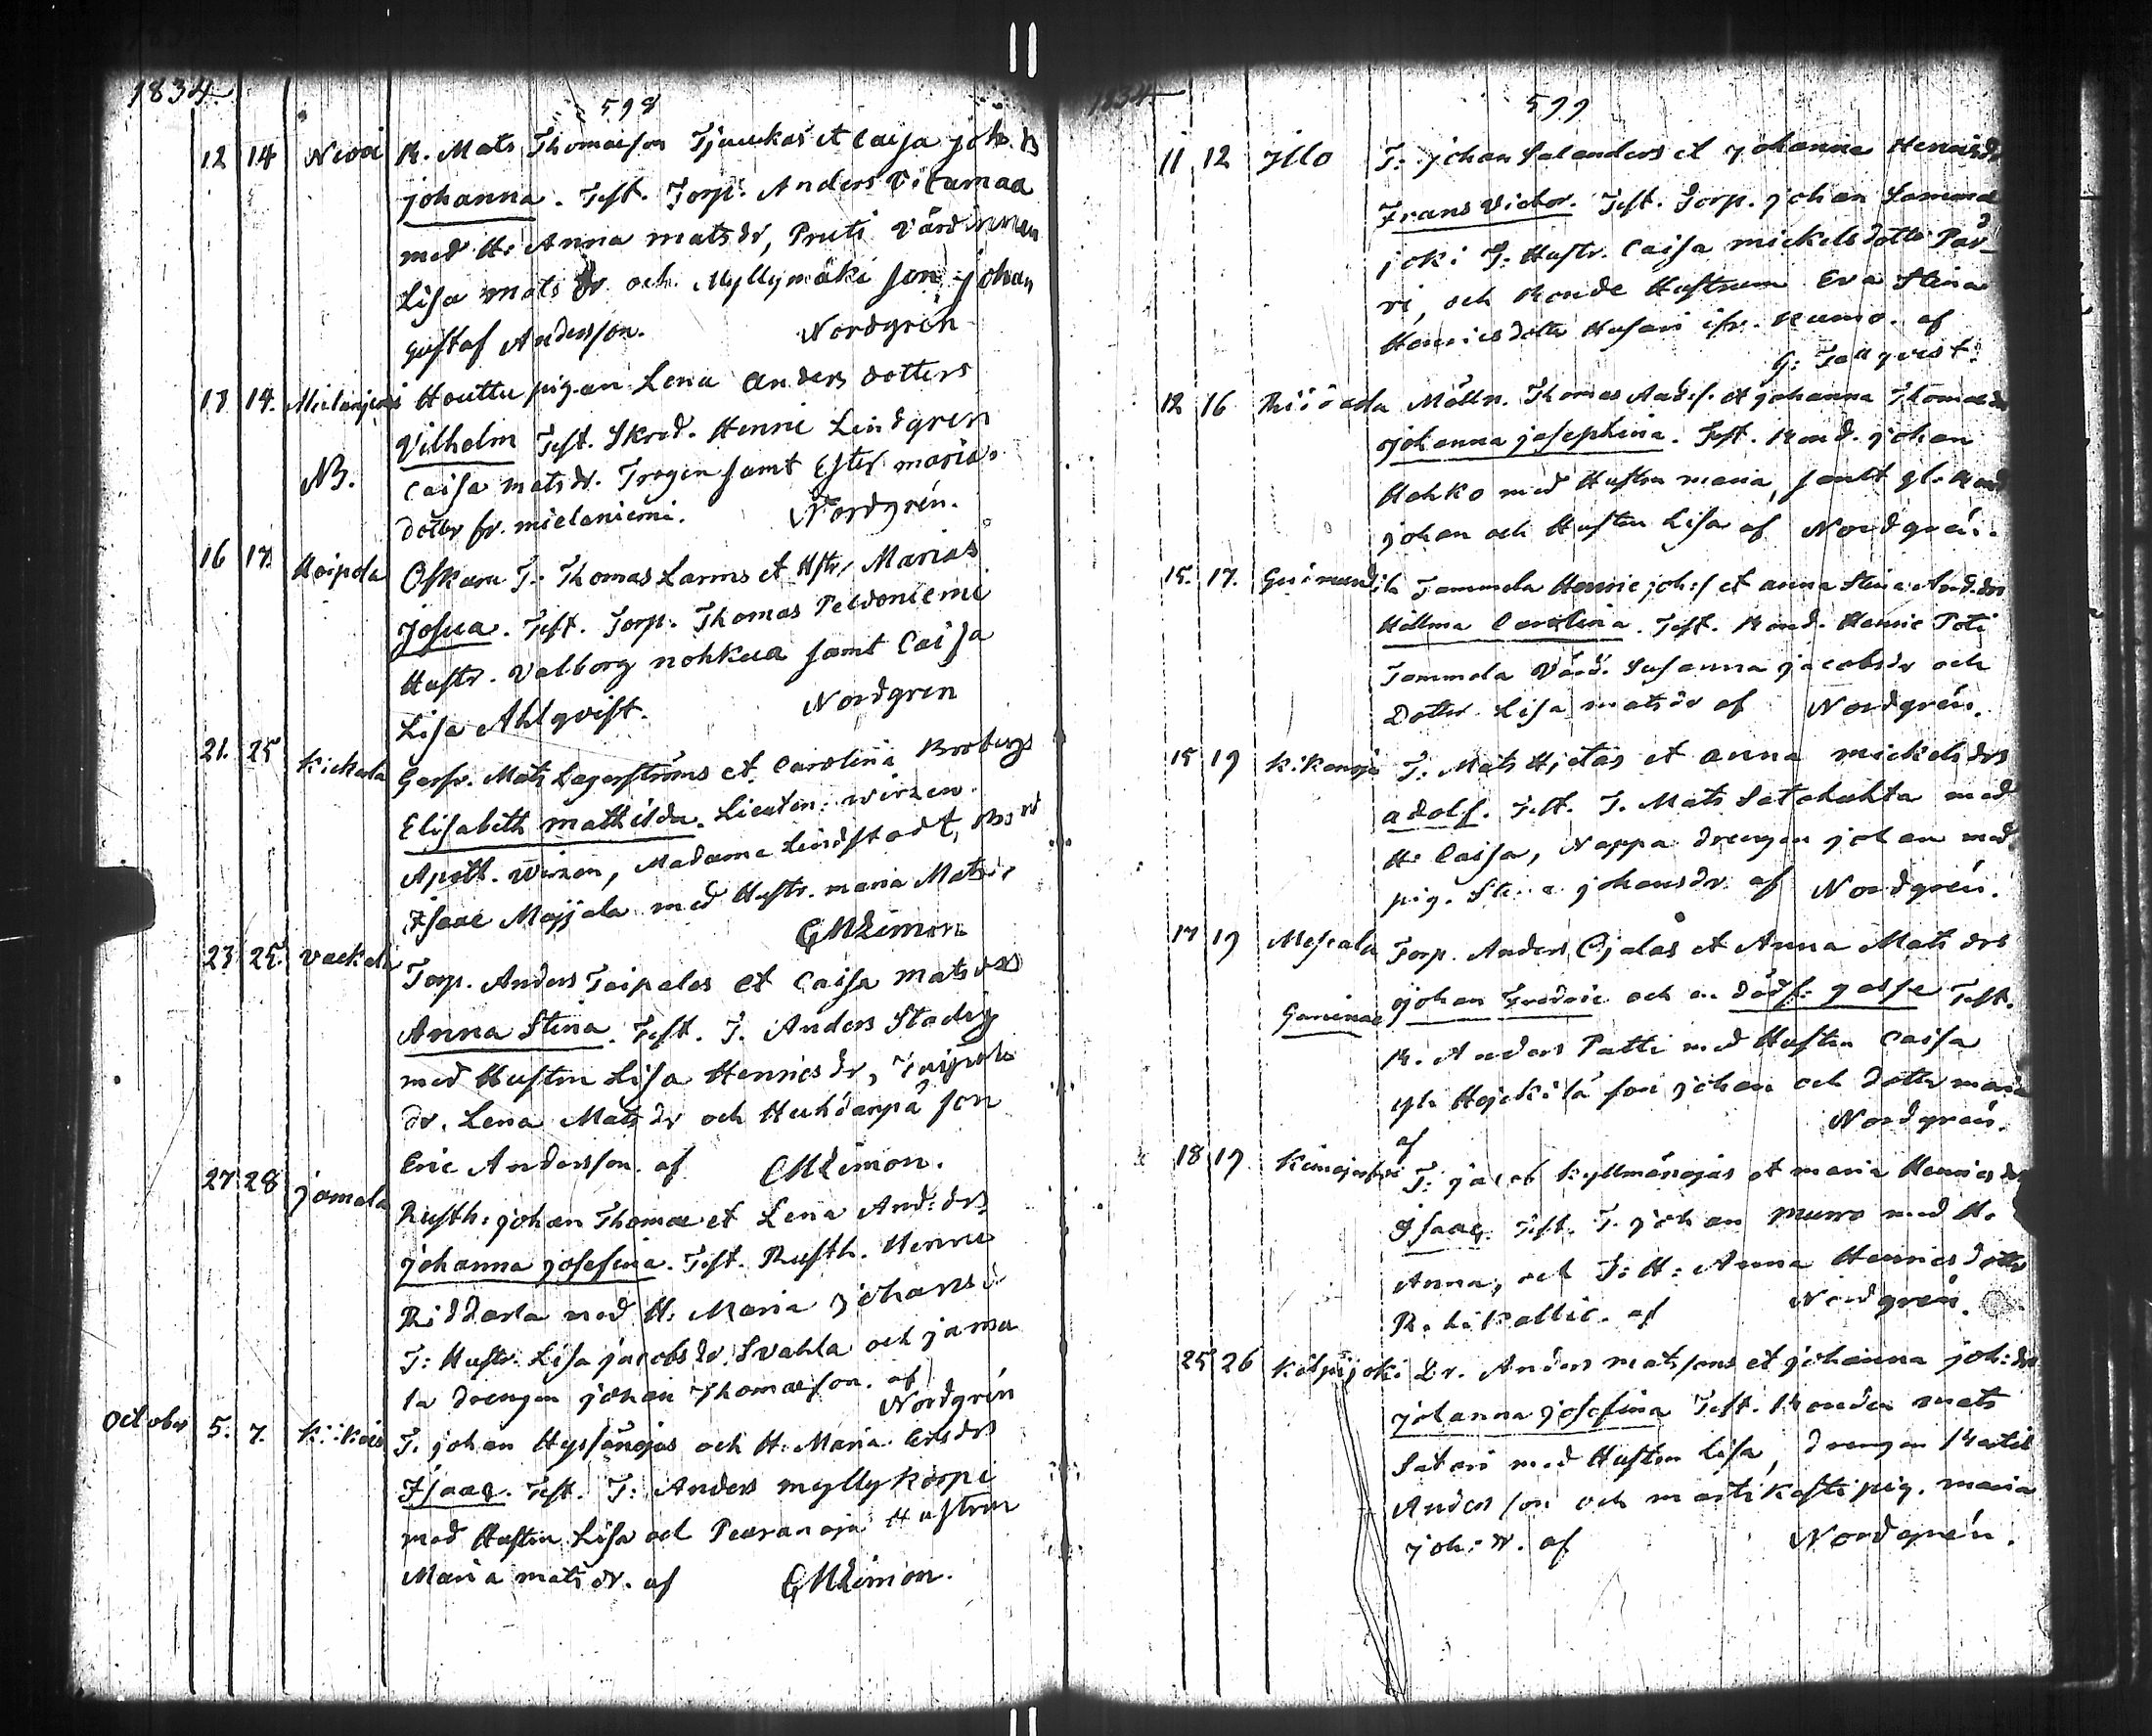 1834.
598
12 14 Nivoi R. Mats Thomasson Tjuukas et Caisa joh. ds
johanna. Test. Torp. Anders Vitamaa
med H. Anna mats dr, Pruti Värdinnan
Lisa mats dr och Myllymäki son johan
gustaf Andersson. Nordgren
13 14. Mielanjemi Houttu pigan Lena anders dotters
Vilhelm Test. Skrd. Henric Lindgren
NB. Caisa mats dr. Trogen samt Ester maria
dotter fr. mielaniemi. Nordgrén.
16 17. Hoipola Oskara T. Thomas Larms et Hstr. Marias
josua. Test. Torp. Thomas Peldoniemi
Hustr. Valborg nohkua samt Caisa
Lisa Ahlqvist. Nordgren
21. 25 Kickela Garfv. Mats Lagerströms et Carolina Brobergs
Elisabeth mathilda. Lieuten. wirzen
Apoth. Wirzen, Madame Lindstadt,
Isaac Majjala med Hustr. maria Mats dr
GMLimon
23 25. Vackala Torp. Anders Taipales et Caisa mats drs
Anna Stina. Test. T. Anders Stadig
med Hustrn Lisa Henrics dr, Taipale
dr. Lena Mats dr och Huhdanpä son
Eric Andersson. af GMLimon.
27 28 jamala Rusth: johan Thomae et Lena And: drs
johanna josefina. Test. Rusth. Henric
Riddarla med H. Maria johans d
T: Hustr. Lisa jacobs dr. Svahla och jama
la drengen johan Thomasson. af Nordgrén
October 5. 7. Kiikois T. johan Hyssänojas och H. Maria Ers drs
Isaac. Test. T: Anders myllykorpi
med Hustrn Lisa och Peuranoja Hustrun
Maria mats dr. af GMLimon.
1834
599
11 12 jllo T. johan Salanders et johanna Henricdr
Frans Victor. Test. Torp. johan Samma
joki T. Hustr. Caisa mickels dotter Pär-
ri, och Bonde Hustrun Eva Stina
Henrics dotter Husari ifr. Kumo. af
G: Tallqvist.
12 16 Mölln. Thomas Anders. et johanna Thomae dr
johanna josephina. Test. Bond. johan
Hohko med Hustru maria, samt gl. Bond
johan och Hustru Lisa af Nordgrén.
15. 17. Tammela Henric joh:s et anna Stina And. drs
Hillma Carolina. Test. Bond. Henric Poti
Tammela Värd. Susanna jacobs dr och
Dotter Lisa mats dr af Nordgrén.
15 19 Kikanoja T. Mats Hjetas et anna mickels drs
adolf. Test. T. Mats Satakuhta med
H. Caisa, Nappa drengen johan med
pig. Stina johans dr af Nordgrén.
17 19 Mescala Torp. Anders Ojalas et Anna Mats drs
Geminae johan Fredric och en dödf: gosse Test.
R. Anders Patti med Hustru Caisa
gl. Hojckilä son johan och dotter maria
af Nordgrén.
18 19 T: jacob Kyllmänojas et maria Henrics dr
Isaac. Test. T. johan Murro med H.
Anna, och T: H: Anna Henrics dotter
Rihikallio. af Nordgrén.
25 26 Kilpijoki Dr. Anders matssons et johanna joh: drs
johanna josefina Test. Bonden mats
Satari med Hustrn Lisa, drengen Mattis
Andersson och martikosti pig. maria
joh: dr. af Nordgrén.